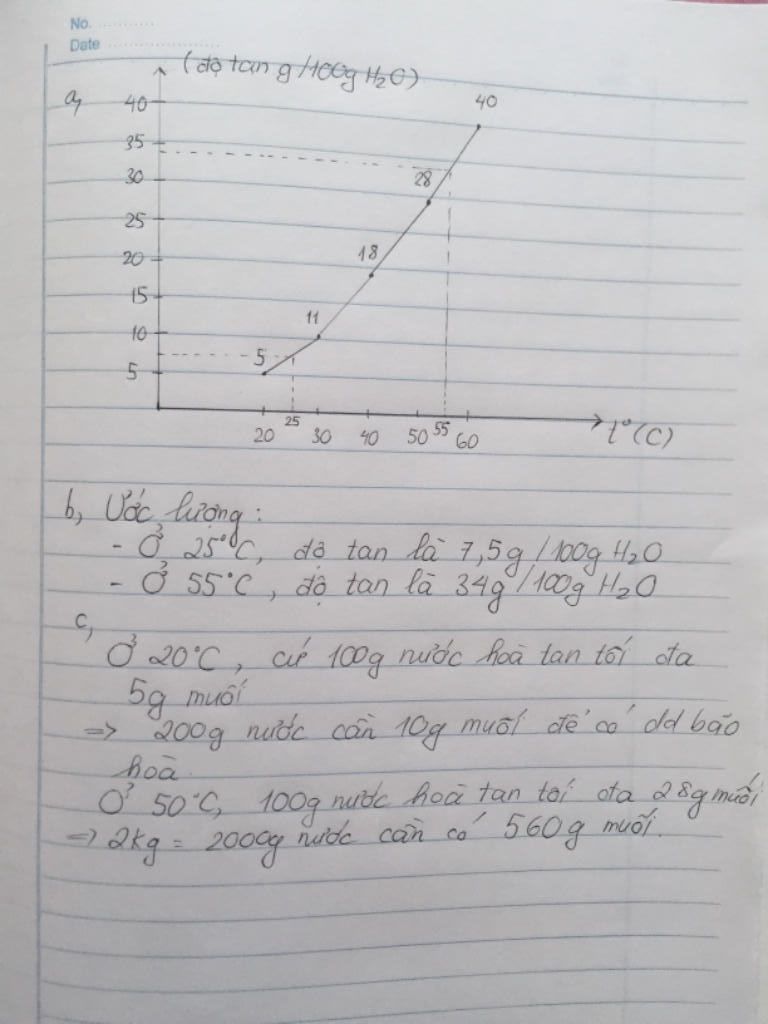 No. ............
Date ........................
(độ tan g/100g H₂O)
a,
40
40
35
30
28
25
20
18
15
11
10
5
5
20
25
30
40
50
55
60
t°(C)
b, Ước lượng:
- Ở 25°C, độ tan là 7,5g/100g H₂O
- Ở 55°C, độ tan là 34g/100g H₂O
c,
Ở 20°C, cứ 100g nước hoà tan tối đa
5g muối
=> 200g nước cần 10g muối để có dd bão
hoà.
Ở 50°C, 100g nước hoà tan tối đa 28g muối
=> 2kg = 2000g nước cần có 560g muối.